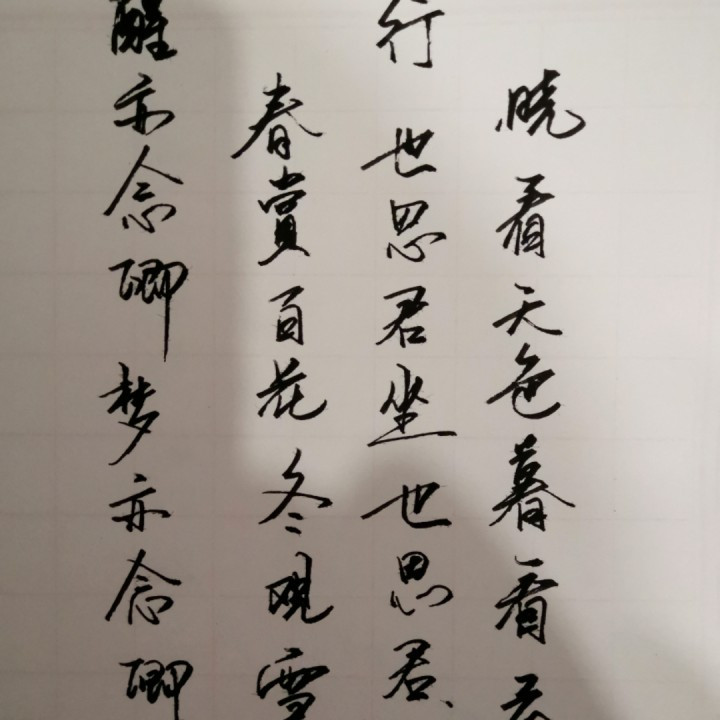 晓看天色暮看云
行也思君坐也思君、
春赏百花冬观雪
醒亦念卿梦亦念卿